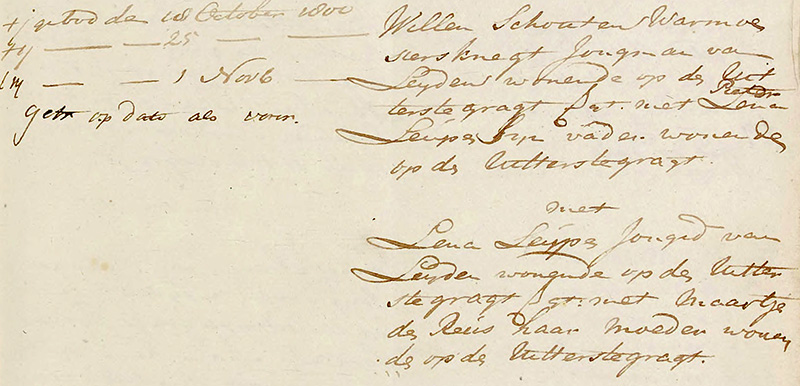 +j gebod de 18 October 1800
+ij — — 25 — — —
iij — — 1 Novb —
Getr op dato als voren.
Willem Schouten Warmoe
siersknegt Jongman van
Leyden wonende op de Uit
terstegragt get. met Pieter
Lena
Leupe syn vader wonende
op de Uitterstegragt.
met
Lena Leupe Jongd van
Leyden wonende op de Uitter
stegragt get. met Maartje
de Reus haar Moeder wonen
de op de Uitterstegragt.